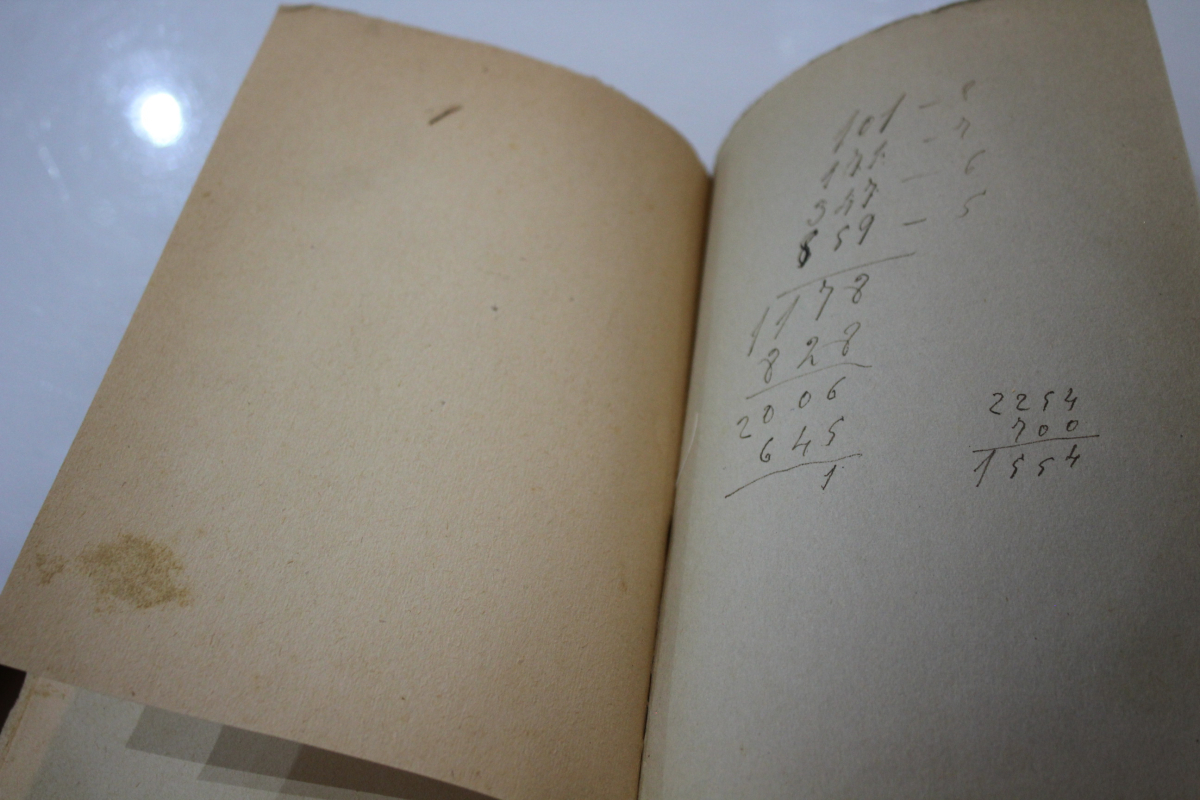 101 – 5
171 – 7
347 – 6
559 – 5
1178
828
2006
645
1
2254
700
1554